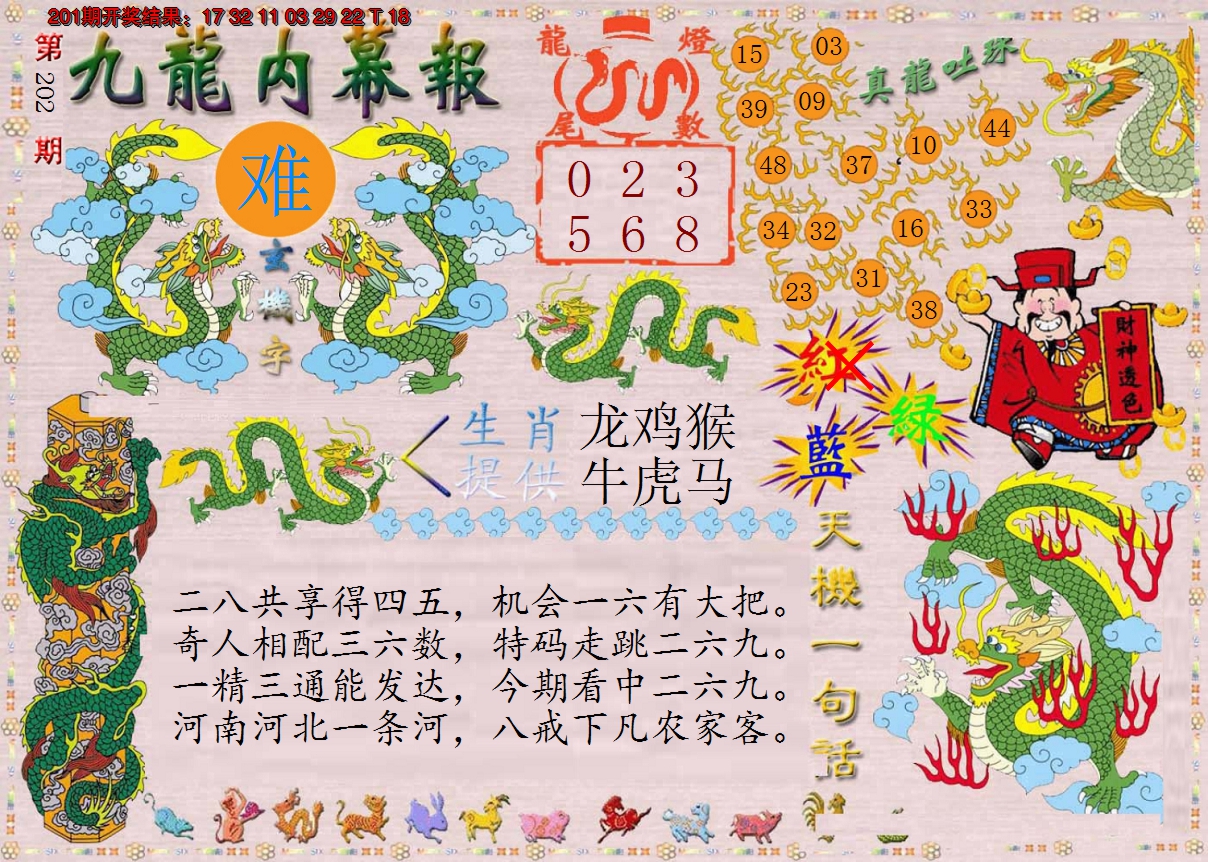 201期开奖结果：17 32 11 03 29 22 T 18
第202期
九龍内幕報
难
玄機字
龍燈
尾數
0 2 3
5 6 8
真龍吐珠
15
03
39
09
48
37
10
44
34
32
16
33
23
31
38
財神透色
紅
綠
藍
生肖
提供
龙鸡猴
牛虎马
天機一句話
二八共享得四五，机会一六有大把。
奇人相配三六数，特码走跳二六九。
一精三通能发达，今期看中二六九。
河南河北一条河，八戒下凡农家客。